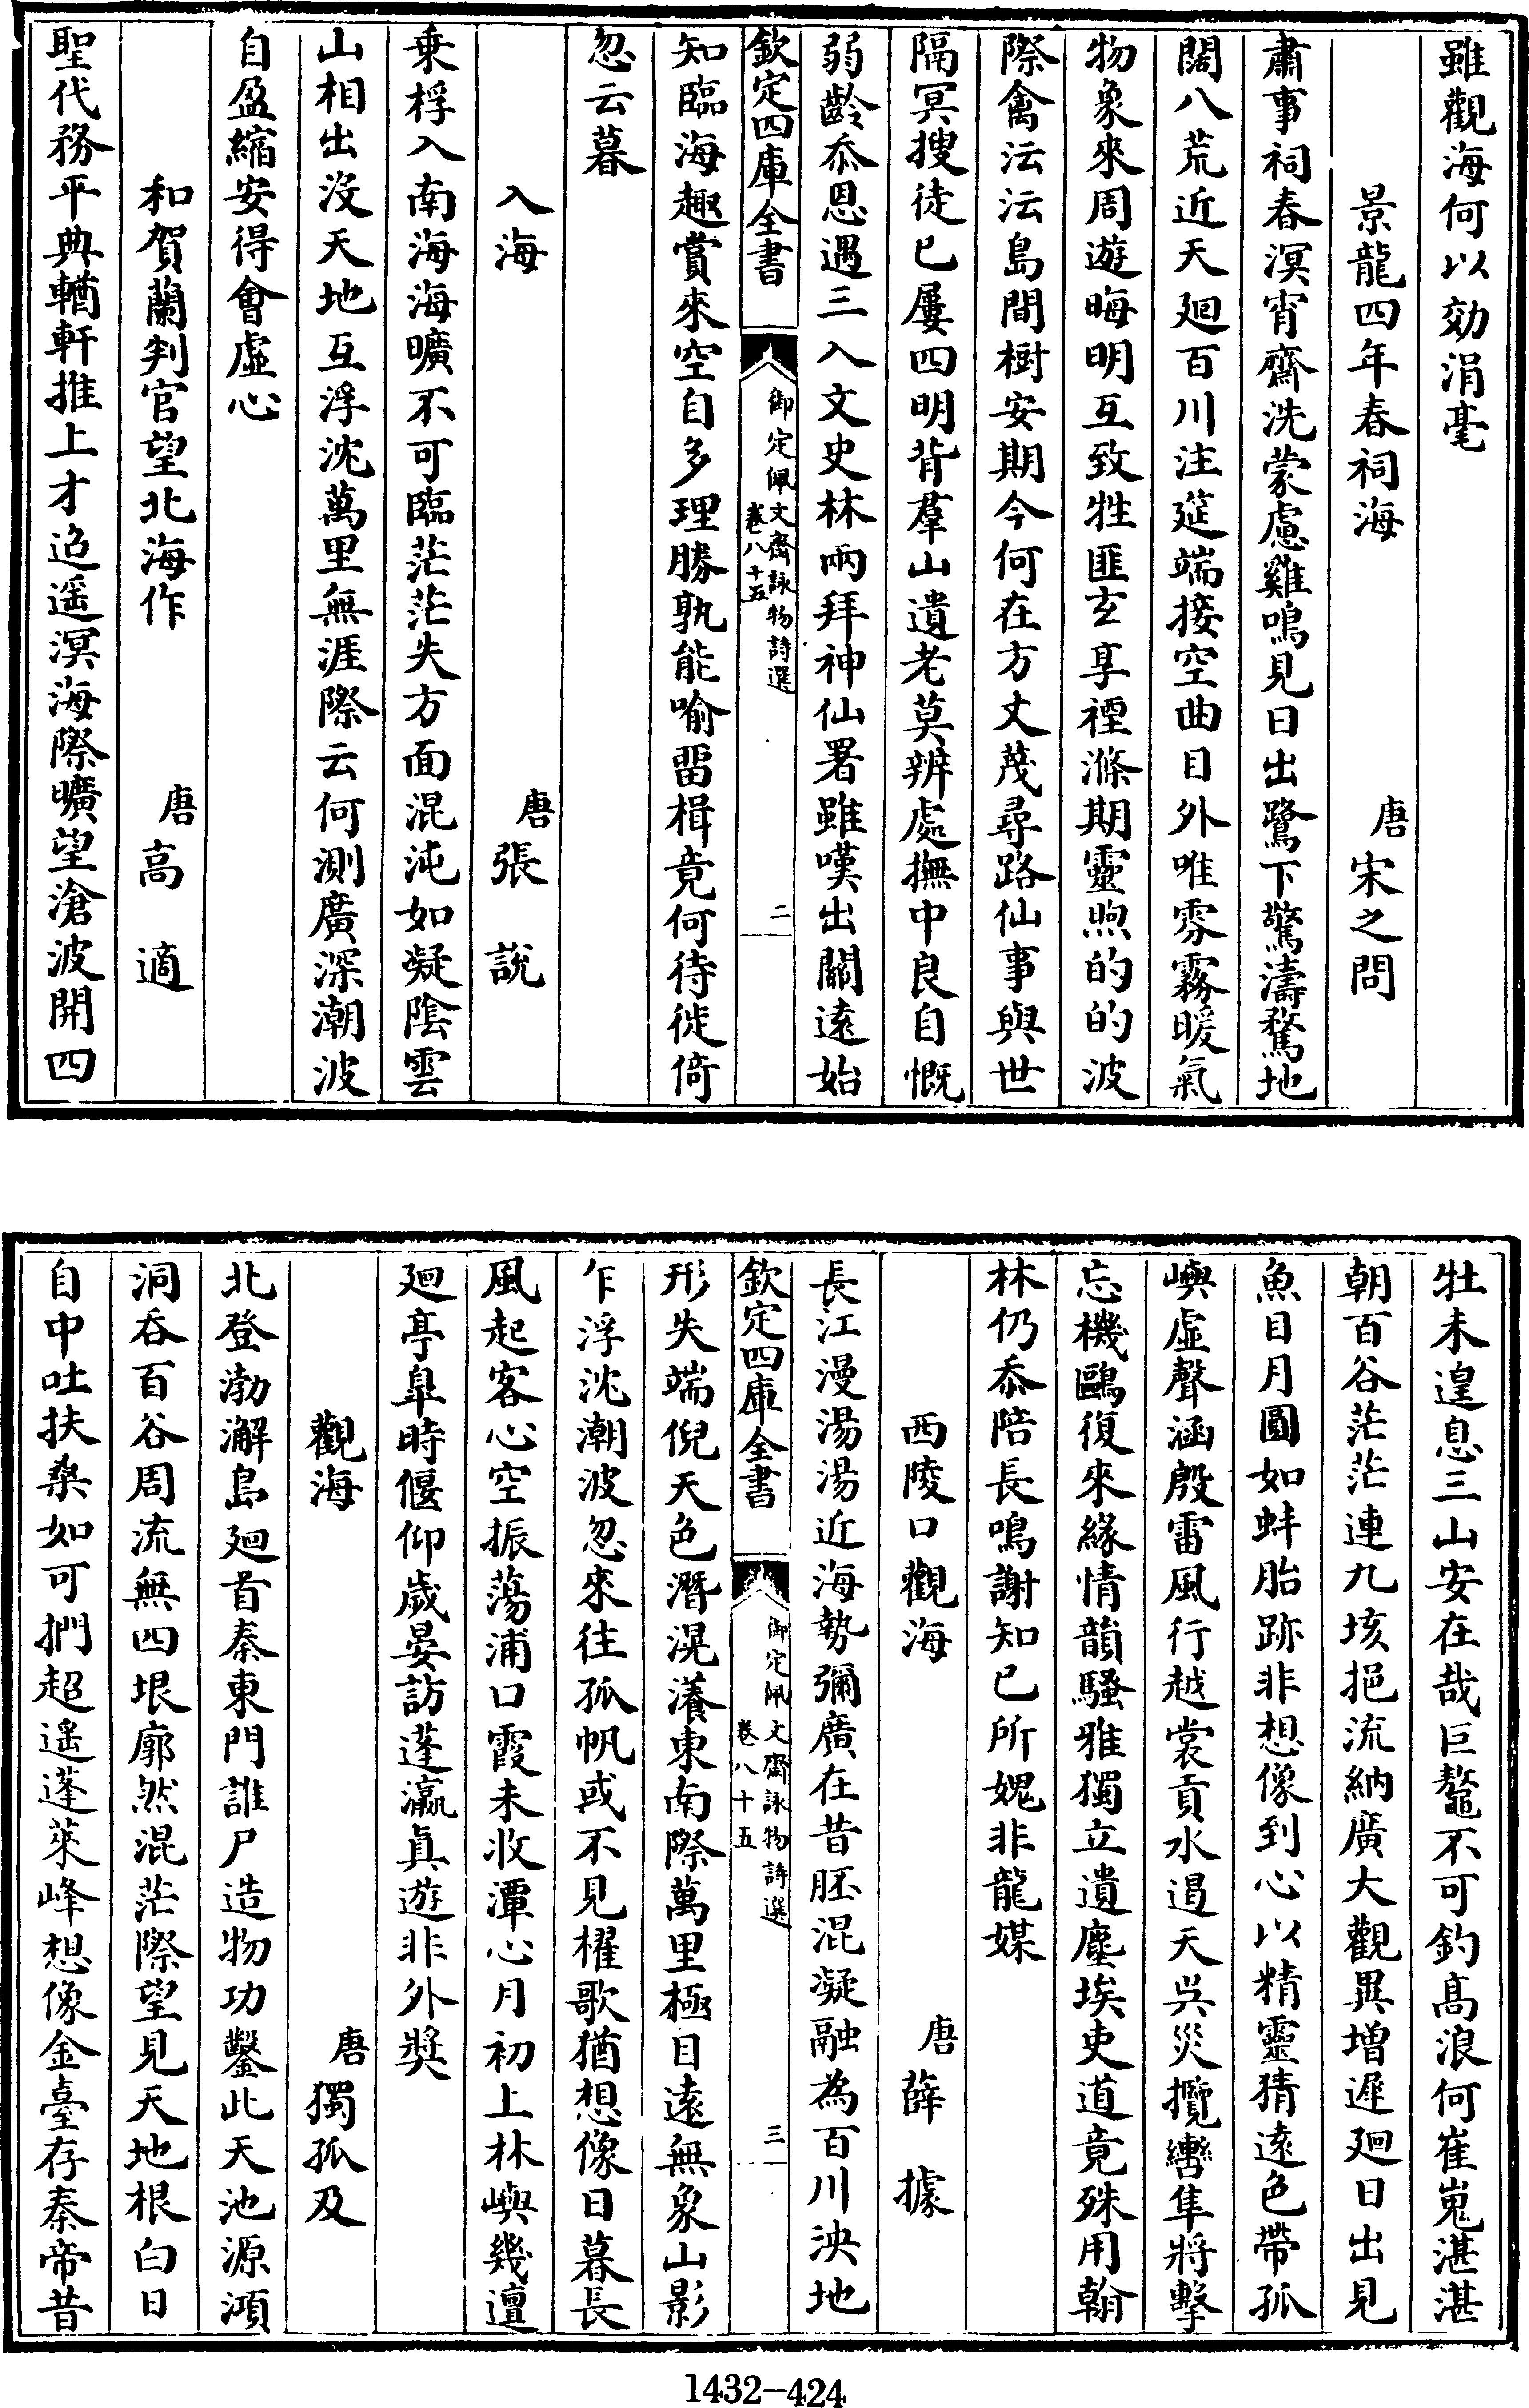 雖觀海何以効涓毫
景龍四年春祠海　唐宋之問
肅事祠春溟宵齋洗蒙慮雞鳴見日出鷺下驚濤鶩地
闊八荒近天廻百川注筵端接空曲目外唯雰霧暖氣
物象來周遊晦明互致牲匪玄享禋滌期靈煦的的波
際禽沄沄島間樹安期今何在方丈茂尋路仙事與世
隔冥搜徒已屢四明背羣山遺老莫辨處撫中良自慨
弱齡忝恩遇三入文史林兩拜神仙署雖嘆出關遠始
欽定四庫全書　御定佩文齋詠物詩選　卷八十五　二
知臨海趣賞來空自多理勝孰能喻畱楫竟何待徙倚
忽云暮
入海　唐張說
乗桴入南海海曠不可臨茫茫失方面混沌如凝陰雲
山相出沒天地互浮沈萬里無涯際云何測廣深潮波
自盈縮安得會虛心
和賀蘭判官望北海作　唐高適
聖代務平典輶軒推上才迢遥溟海際曠望滄波開四
牡未遑息三山安在哉巨鼇不可釣髙浪何崔嵬湛湛
朝百谷茫茫連九垓挹流納廣大觀異増遲廻日出見
魚目月圓如蚌胎跡非想像到心以精靈猜遠色帶孤
嶼虛聲涵殷雷風行越裳貢水遏天吳災攬轡隼將擊
忘機鷗復來緣情韻騷雅獨立遺塵埃吏道竟殊用翰
林仍忝陪長鳴謝知已所媿非龍媒
西陵口觀海　唐薛據
長江漫湯湯近海勢彌廣在昔胚混凝融為百川泱地
欽定四庫全書　御定佩文齋詠物詩選　卷八十五　三
形失端倪天色潛滉瀁東南際萬里極目遠無象山影
乍浮沈潮波忽來往孤帆或不見櫂歌猶想像日暮長
風起客心空振蕩浦口霞未收潭心月初上林嶼幾邅
廻亭臯時偃仰歲晏訪蓬瀛真遊非外奬
觀海　唐獨孤及
北登渤澥島廻首秦東門誰尸造物功鑿此天池源澒
洞吞百谷周流無四垠廓然混茫際望見天地根白日
自中吐扶桑如可捫超遥蓬萊峰想像金臺存秦帝昔
1432—424